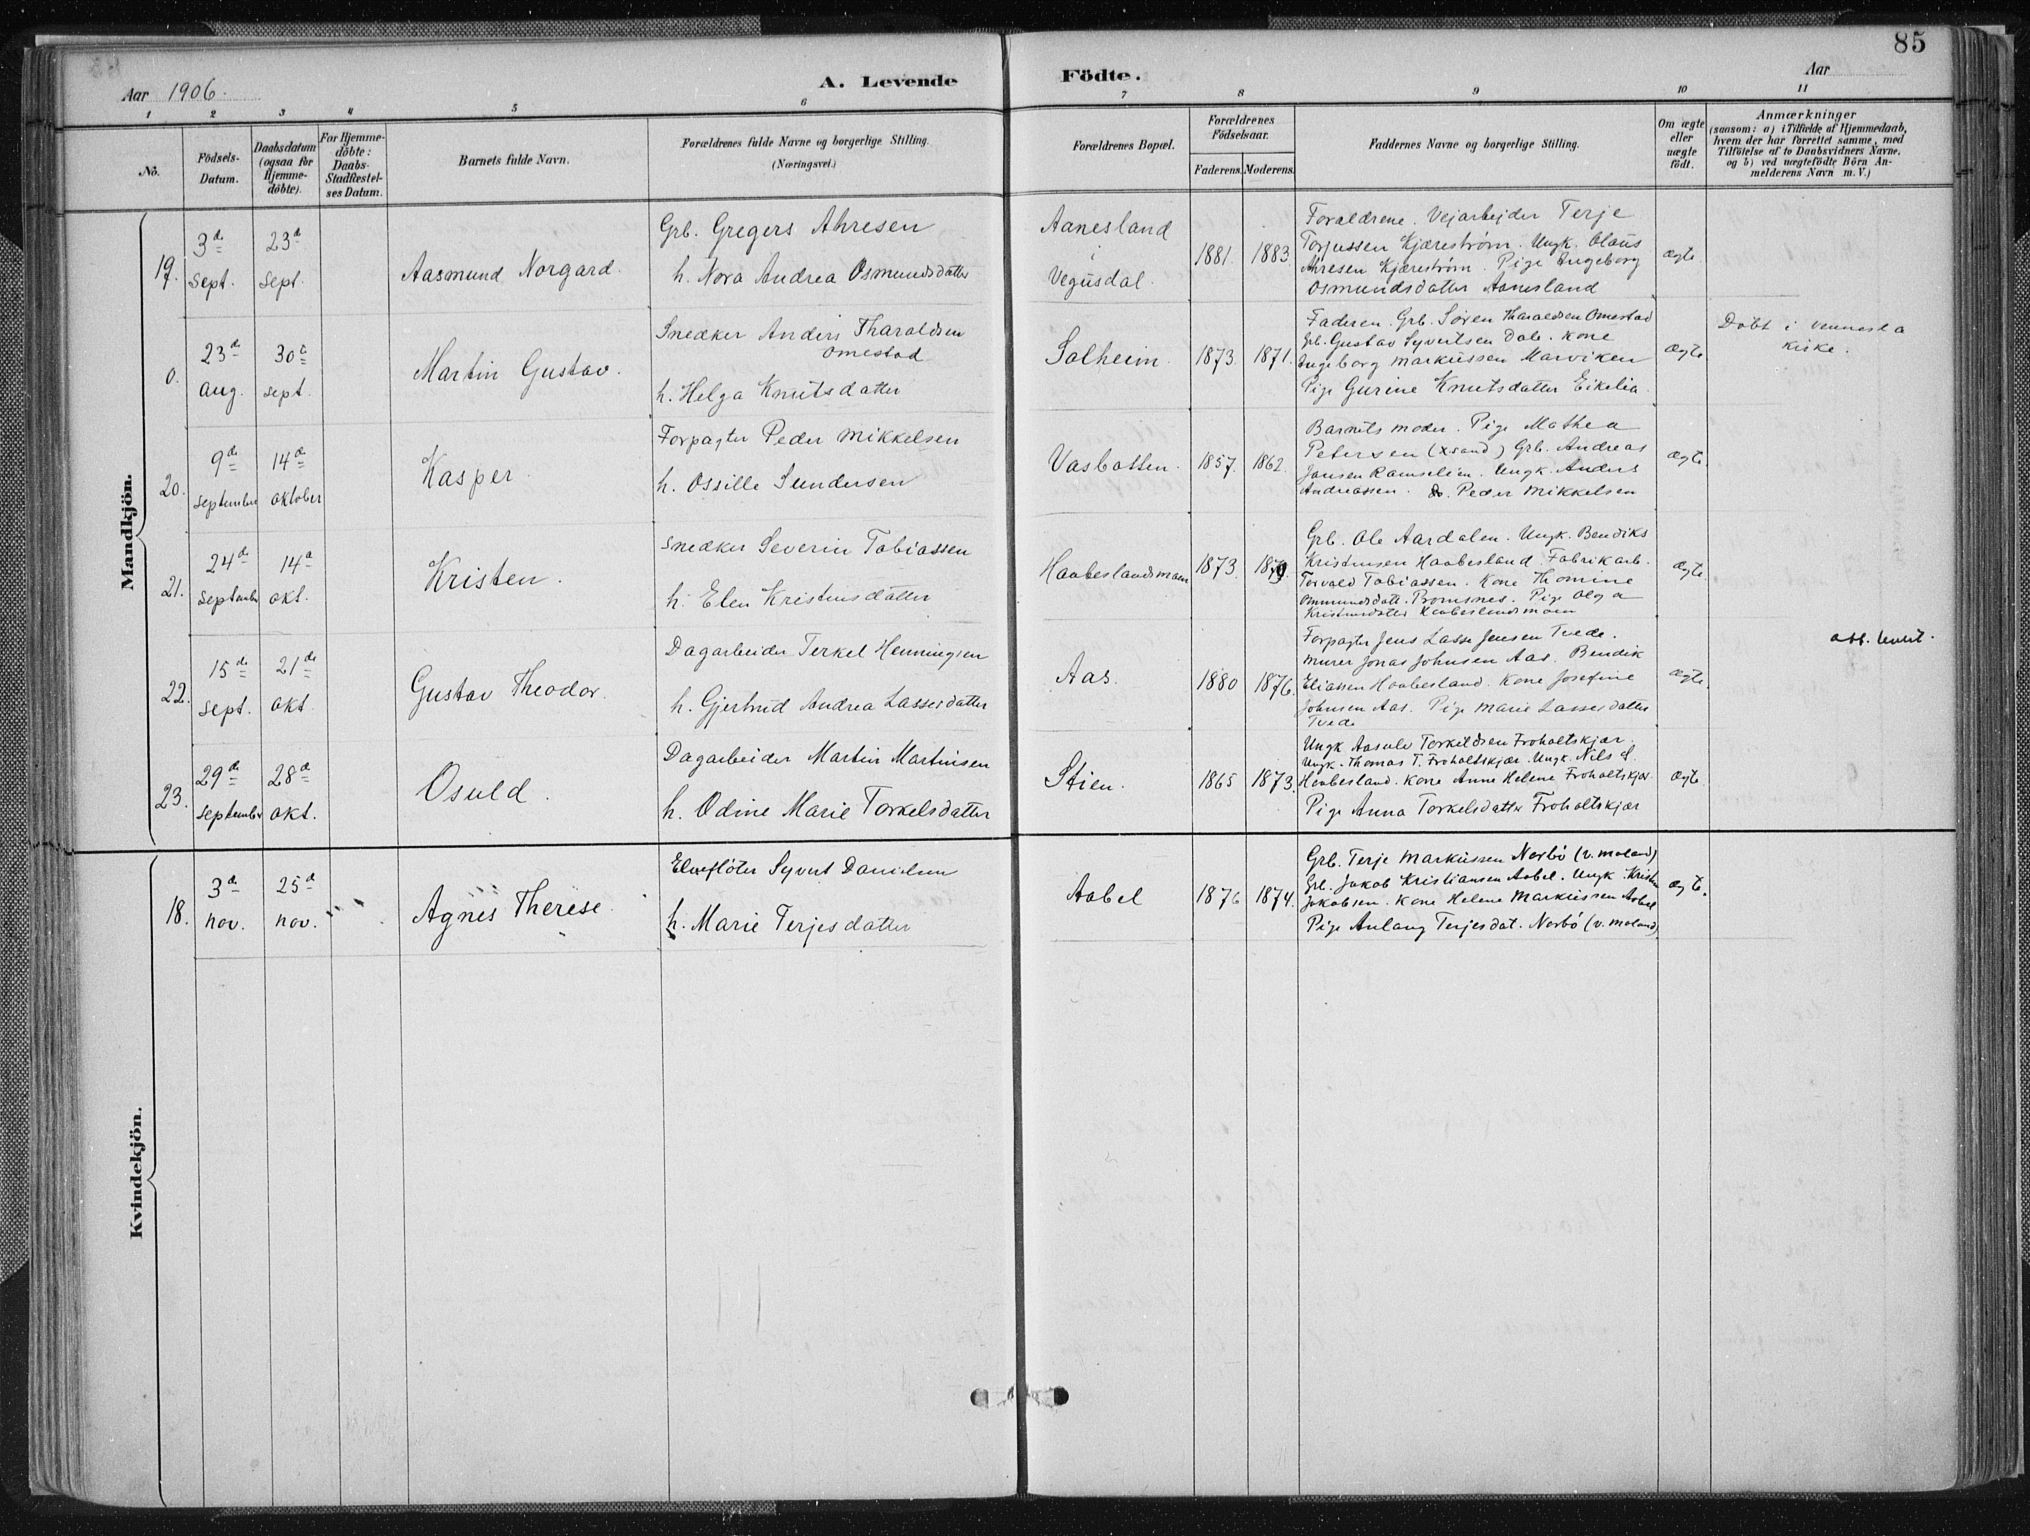 85
Aar 1906.
A. Levende
Födte.
Aar
1 2 3 4 5 6 7 8 9 10 11
No.
Födsels-
Datum.
Daabsdatum
(ogsaa for
Hjemme-
döbte).
For Hjemme-
döbte:
Daabs-
Stadfæstel-
ses Datum.
Barnets fulde Navn.
Forældrenes fulde Navne og borgerlige Stilling.
(Næringsvei.)
Forældrenes Bopæl.
Forældrenes
Födselsaar.
Faderens. Moderens.
Faddernes Navne og borgerlige Stilling.
Om ægte
eller
uægte
födt.
Anmærkninger
(saasom: a) i Tilfælde af Hjemmedaab,
hvem der har forrettet samme, med
Tilföielse af to Daabsvidners Navne,
og b) ved uægtefödte Börn An-
melderens Navn m. V.)
Mandkjön.
19. 3de Sept. 23de Sept.
Aasmund Norgard.
Grb. Gregers Ahresen
h. Nora Andrea Osmundsdatter
Aanesland
i
Vegusdal.
1881. 1883
Forældrene. Vejarbejder Terje
Torjussen Kjærestrøm. Ungk. Olaus
Ahresen Kjærestrøm. Pige Ingeborg
Osmundsdatter Aanesland
ægte
0. 23de aug. 30te sept.
Martin Gustav.
Snedker Anders Tharaldsen
Omestad
h. Helga Knutsdatter
Solheim
1873. 1871.
Faderen. Grb. Søren Tharaldsen Omestad
Grb. Gustav Syvertsen Dale. Kone
Ingeborg Markussen Marviken
Pige Gurine Knutsdatter Eikelia.
ægte
Døbt i Vennesla
Kirke.
20. 9de september 14de oktober
Kasper.
Forpagter Peder Mikkelsen
h. Ossille Sundersen
Vasbotten.
1857. 1862.
Barnets moder. Pige Mathea
Petersen (Xsand) Grb. Andreas
Jansen Ramselien. Ungk. Anders
Andreassen. do. Peder Mikkelsen
ægte
21. 24de september 14de okt.
Kristen.
Snedker Severin Tobiassen
h. Elen Kristensdatter
Haabeslandsmoen
1873.
Grb. Ole Aardalen. Ungk. Bendiks
Kristensen Haabesland. Fabrikarb.
Torvald Tobiassen. Kone Thomine
Ommundsdatt. Pige Olga
Kristensdatter Haabeslandsmoen
ægte.
22. 15de Sept. 21de okt.
Gustav Theodor.
Dagarbeider Terkel Henningsen
h. Gjertrud Andrea Lassesdatter
Aas.
1880 1876.
Forpagter Jens Lasse Jensen Tvede.
Murer Jonas Johnsen Aas. Bendik
Eliassen Haabesland. Kone Josefine
Johnsen Aas. Pige Marie Lassesdatter
Tvede
ægte.
23. 29de September 28de okt.
Osuld.
Dagarbeider Martin Martinsen
h. Odine Marie Torkelsdatter
Stien.
1865 1873.
Ungk Aasulv Torkeldsen Froholtskjær.
Ungk. Thomas T. Froholtskjær. Ungk. Nils
Haabesland. Kone Anne Helene Froholtskjær.
Pige Anna Torkelsdatter Froholtskjær
ægte
Kvindekjön.
18. 3de nov. 25de nov.
Agnes Therese.
Elveflöter Syvert Danielsen
h. Marie Terjesdatter
Aabel
1876 1874.
Grb. Terje Markussen Nerbö (v. moland)
Grb. Jakob Kristiansen Aabel. Ungk. Kristen
Jakobsen. Kone Helene Markussen Aabel
Pige Aslaug Terjesdat. Nerbö (v. moland)
ægte.